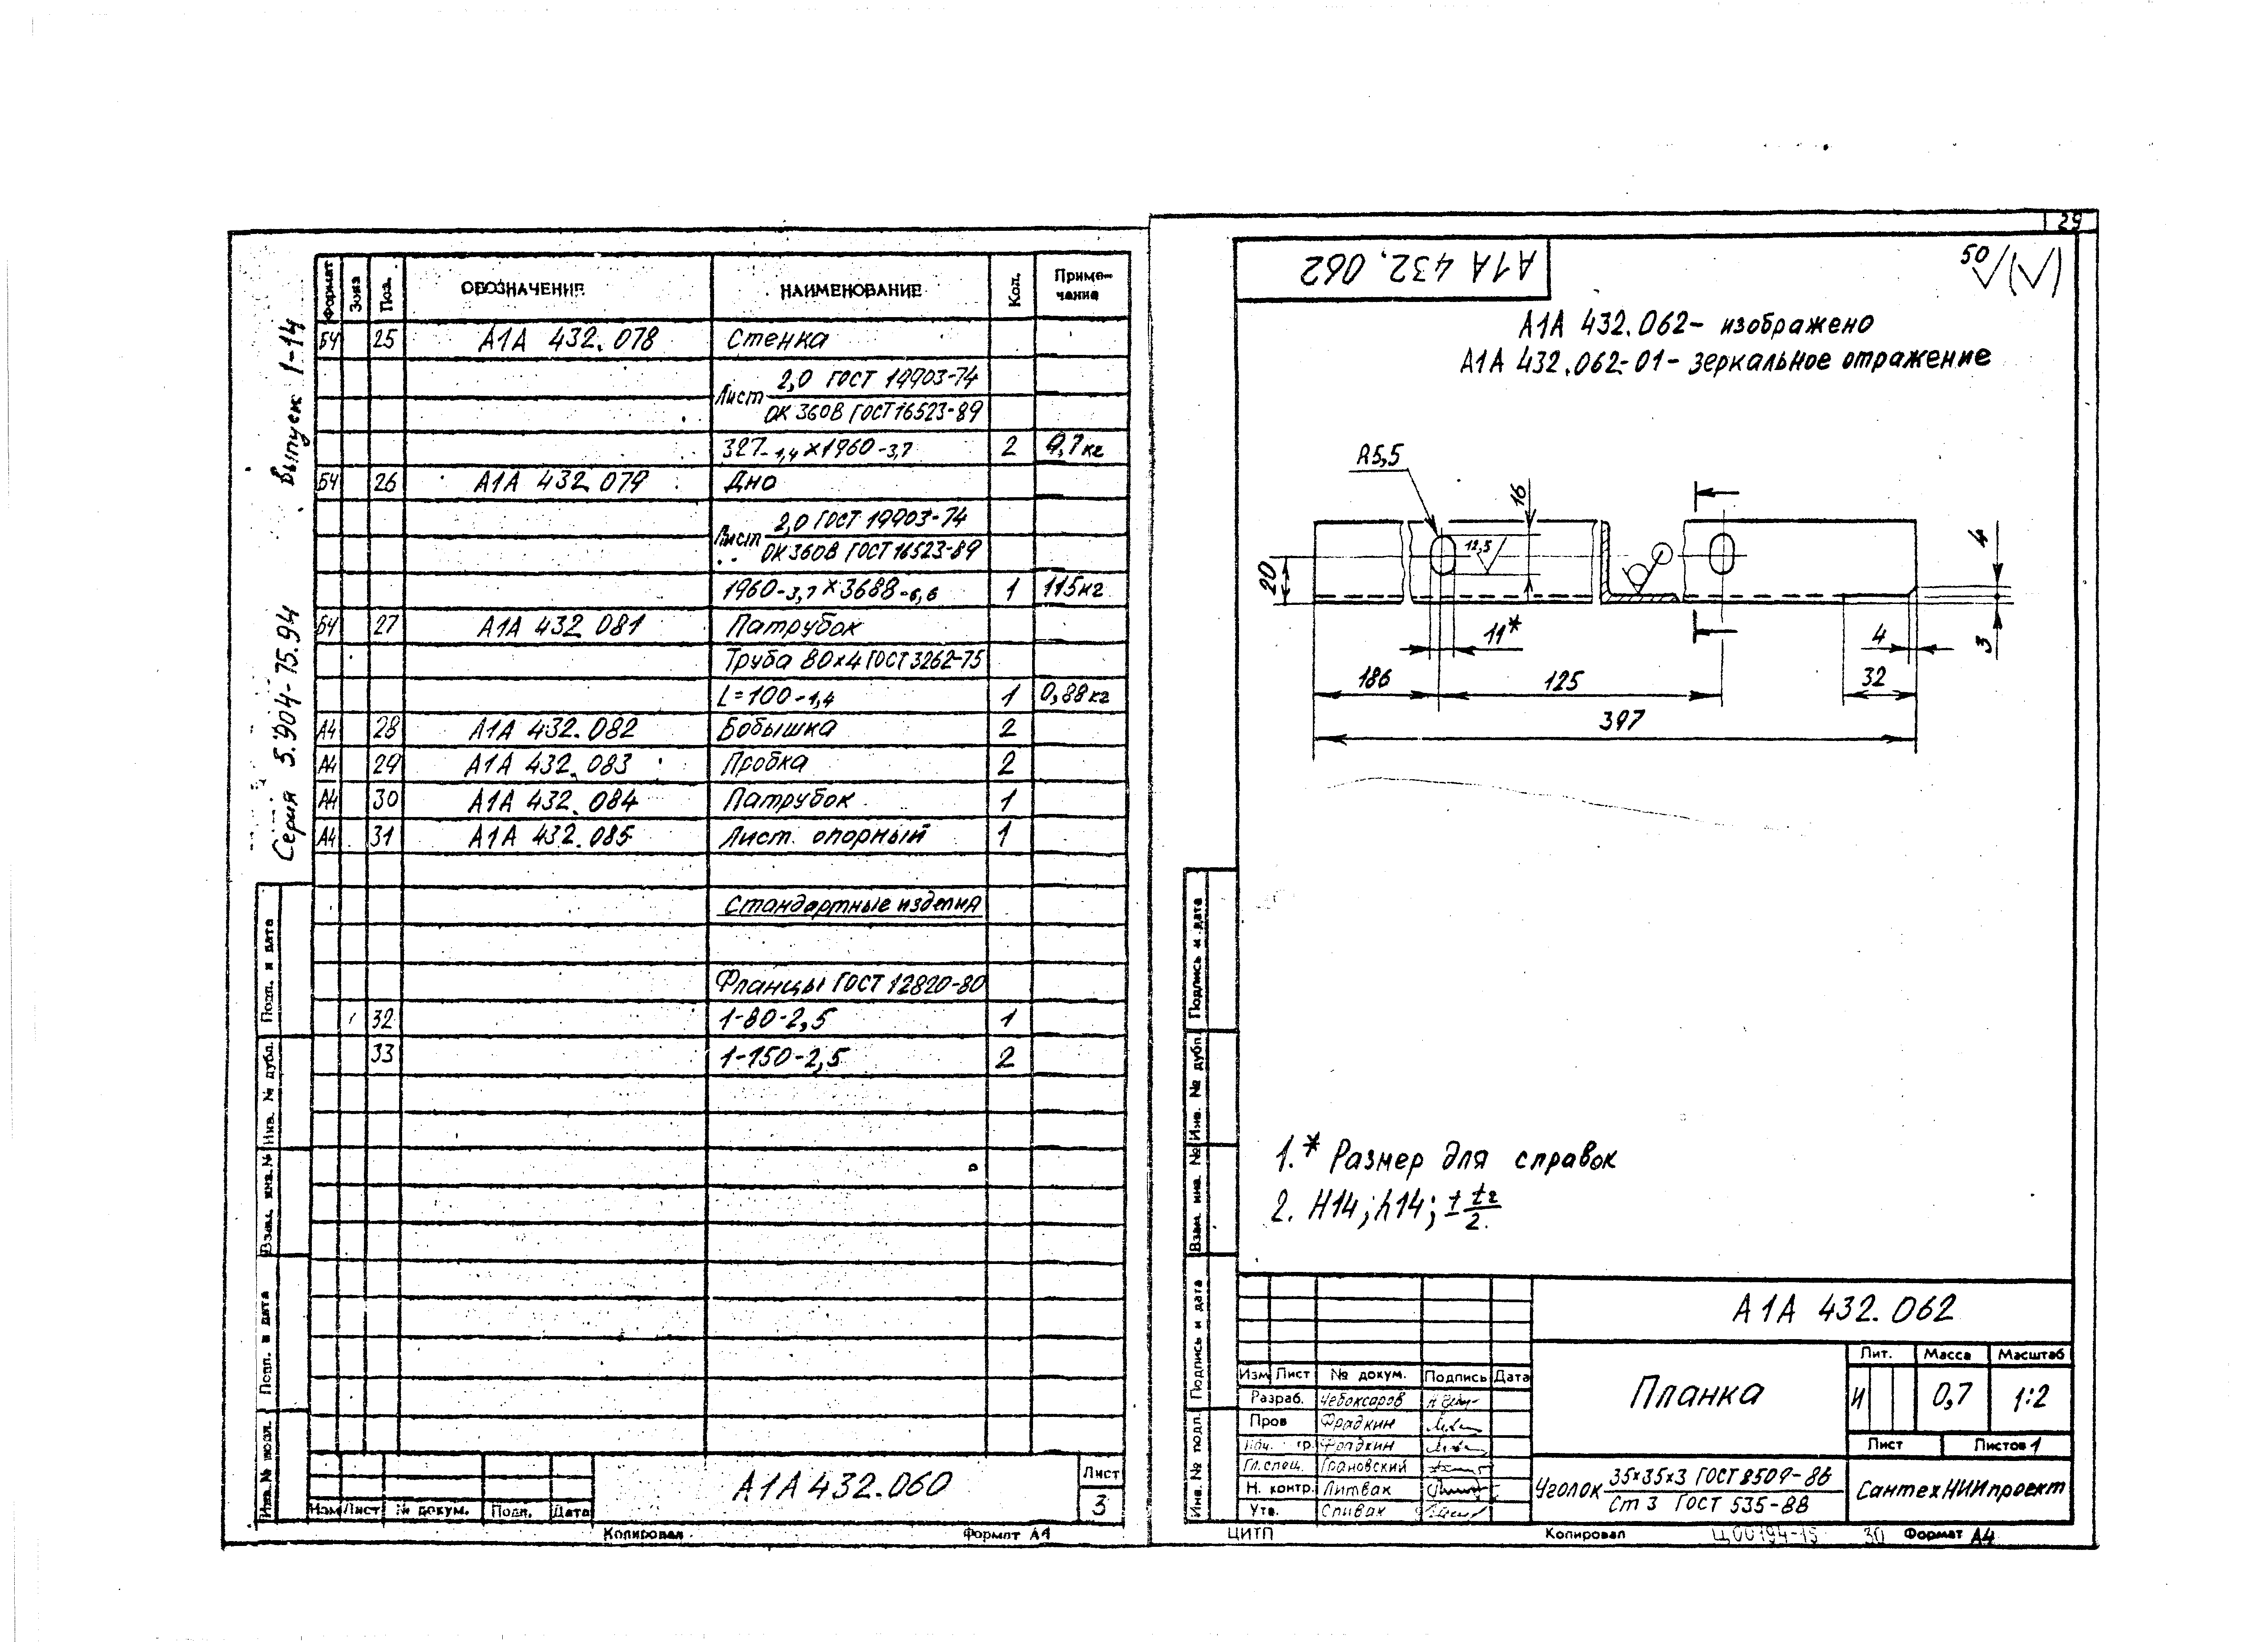 Серия 5.904-75.94 Выпуск 1-14
Формат Зона Поз. ОБОЗНАЧЕНИЕ НАИМЕНОВАНИЕ Кол. Приме-
чание
БЧ 25 А1А 432.078 Стенка
2,0 ГОСТ 19903-74
Лист
ОК 360В ГОСТ 16523-89
327-1,4×1960-3,7 2 9,7кг
БЧ 26 А1А 432.079 Дно
2,0 ГОСТ 19903-74
Лист
ОК 360В ГОСТ 16523-89
1960-3,7×3688-6,6 1 115кг
БЧ 27 А1А 432 081 Патрубок
Труба 80×4 ГОСТ 3262-75
L=100-1,4 1 0,88кг
А4 28 А1А 432.082 Бобышка 2
А4 29 А1А 432.083 Пробка 2
А4 30 А1А 432.084 Патрубок 1
А4 31 А1А 432.085 Лист опорный 1
Стандартные изделия
Фланцы ГОСТ 12820-80
32 1-80-2,5 1
33 1-150-2,5 2
Подп. и дата
Инв. № дубл.
Взам. инв. №
Подп. и дата
Инв. № подл.
Изм Лист № докум. Подп. Дата
А1А 432.060
Лист
3
Копировал Формат А4
29
А1А 432.062
50 (√)
А1А 432.062- изображено
А1А 432.062-01- зеркальное отражение
R5,5
16
12,5
20
4
3
11*
4
186
125
32
397
1.* Размер для справок
2. H14; h14; ± t2/2
Подпись и дата
Инв. № дубл.
Взам. инв. №
Подпись и дата
Инв. № подл.
А1А 432.062
Изм Лист № докум. Подпись Дата
Разраб. Чебоксаров
Пров Фрадкин
Нач. гр. Фрадкин
Гл. спец. Грановский
Н. контр. Литвак
Утв. Спивак
Планка
Лит. Масса Масштаб
И 0,7 1:2
Лист Листов 1
35×35×3 ГОСТ 8509-86
Уголок
Ст 3 ГОСТ 535-88
СантехНИИпроект
ЦИТП Копировал Ц00194-15 30 Формат А4